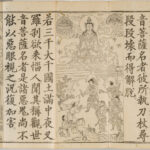 音菩薩名者彼所執刀杖尋
段段壞而得解脫
若三千大千國土滿中夜叉
羅剎欲來惱人聞其稱觀世
音菩薩名者是諸惡鬼尚不
能以惡眼視之況復加害